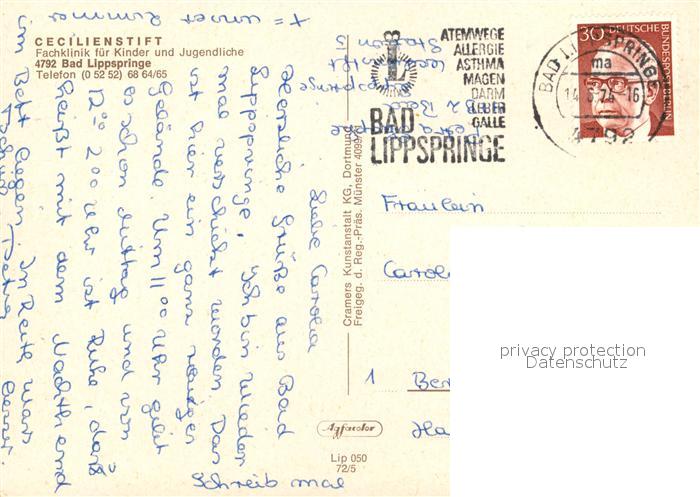 CECILIENSTIFT
Fachklinik für Kinder und Jugendliche
4792 Bad Lippspringe
Telefon (0 52 52) 68 64/65
ATEMWEGE
ALLERGIE
ASTHMA
MAGEN
DARM
LEBER
GALLE
BAD
LIPPSPRINGE
BAD LIPPSPRINGE
ma
4792
30
DEUTSCHE
BUNDESPOST BERLIN
Cramers Kunstanstalt KG, Dortmund
Freigeg. d. Reg.-Präs. Münster 4099/
Agfacolor
Lip 050
72/5
Fräulein
Carola
1
Ber
Ha
privacy protection
Datenschutz
Liebe Carola
Herzliche Grüße aus Bad
Lippspringe. Ich bin wieder
mal verschickt worden. Das
ist hier ein ganz
Gelände. Um 11 00 Uhr gibt
es schon Mittag und von
12 00 - 2 00 Uhr ist Ruhe, das
heißt mit dem Nachthemd
im Bett liegen.
Schreib mal
+ = unser Zimmer